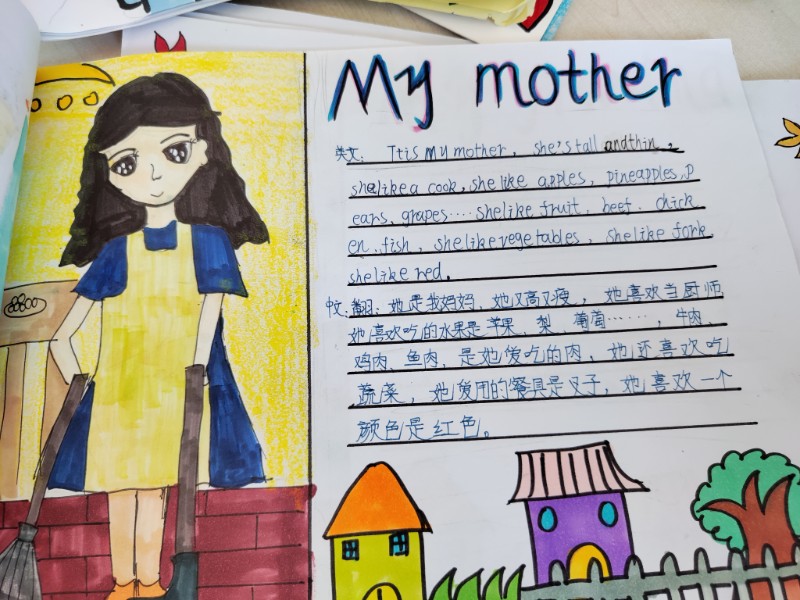 My mother
英文: It is My mother, she's tall and thin,
she like a cook, she like apples, pineapples, p
ears, grapes.... she like fruit, beef, chick
en, fish, she like vegetables, she like fork
she like red.
中文 翻: 她是我妈妈、她又高又瘦，她喜欢当厨师
她喜欢吃的水果是苹果、梨、葡萄……，牛肉、
鸡肉、鱼肉、是她爱吃的肉，她还喜欢吃
蔬菜，她爱用的餐具是叉子，她喜欢一个
颜色是红色。